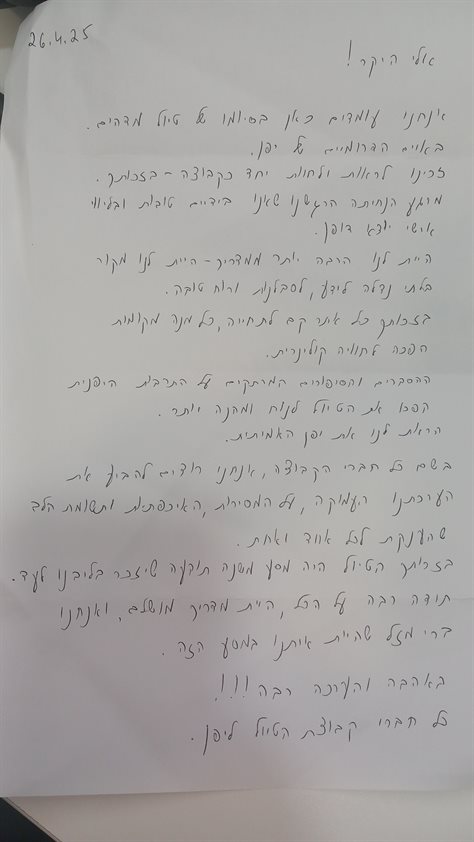 26.4.25
אלי היקר!
אנחנו עומדים כאן בסיומו של טיול מדהים.
באיים הדרומיים של יפן.
זכינו לראות ולחוות יחד כקבוצה - בזכותך.
מרגע הנחיתה הרגשנו שאנו בידיים טובות ובליווי
אישי יוצא דופן.
היית לנו הרבה יותר ממדריך - היית לנו מקור
בלתי נדלה לידע, לסבלנות ורוח טובה.
בזכותך כל אתר קם לתחייה, כל מנה מקומית
הפכה לחוויה קולינרית.
ההסברים והסיפורים המרתקים על התרבות היפנית
הפכו את הטיול לנוח ומהנה יותר.
הראת לנו את יפן האמיתית.
בשם כל חברי הקבוצה, אנחנו רוצים להביע את
הערכתנו העמוקה, על המסירות, האיכפתיות ותשומת הלב
שהענקת לכל אחד ואחת.
בזכותך הטיול היה מסע משנה תודעה שיזכר בליבנו לעד.
תודה רבה על הכל, היית מדריך מושלם, ואנחנו
ברי מזל שהיית איתנו במסע הזה.
באהבה והערכה רבה!!!
כל חברי קבוצת הטיול ליפן.